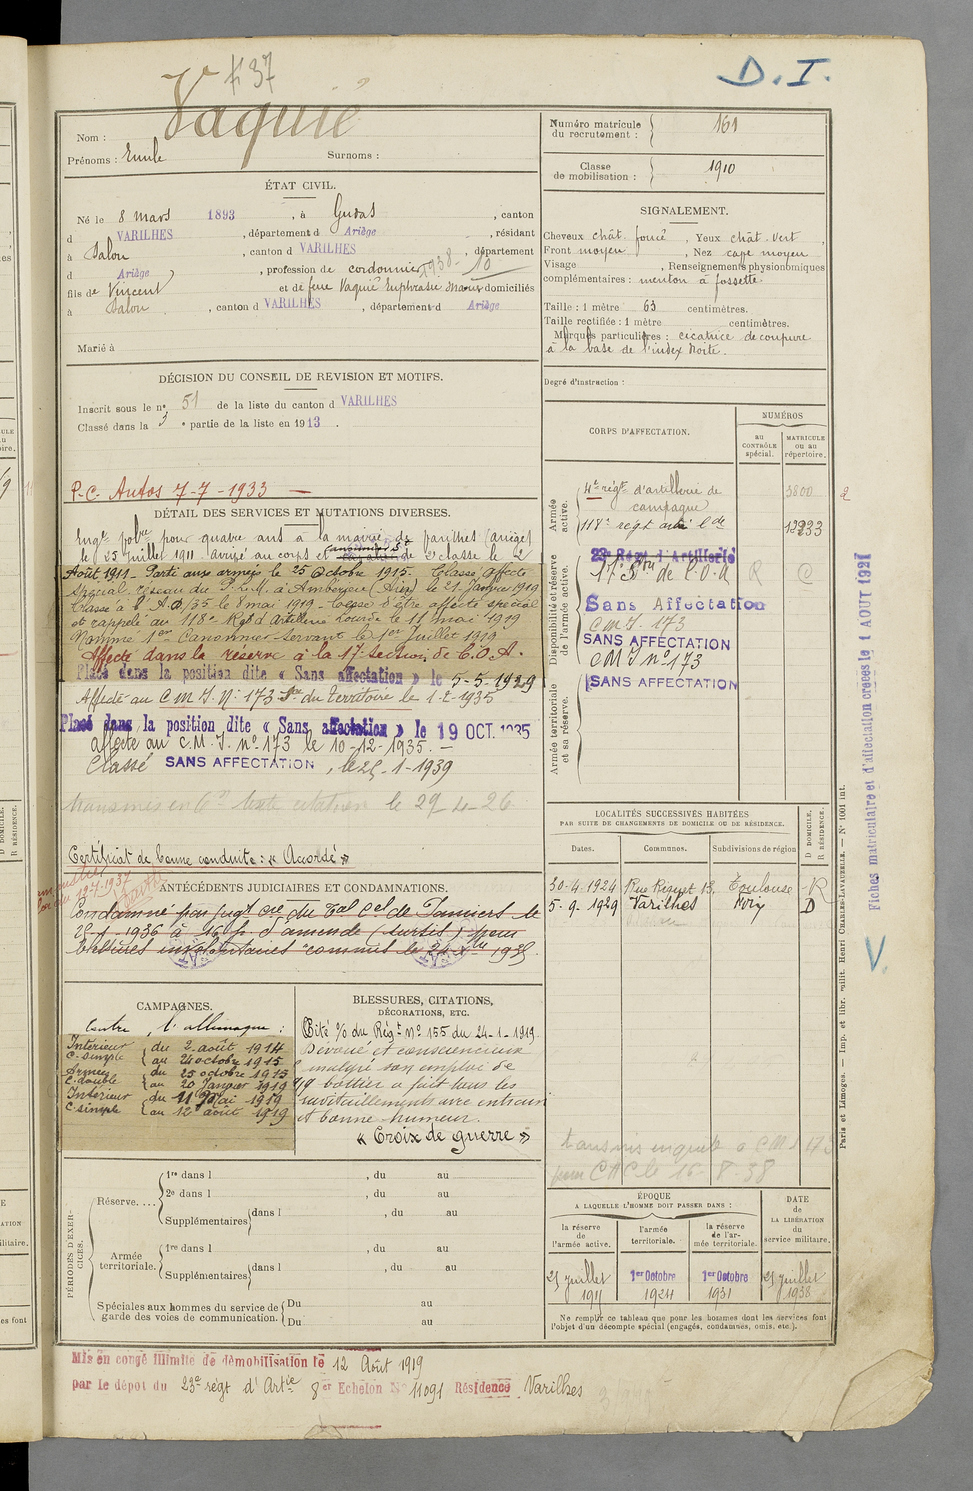 #37
D. I.
Nom : Vaquié
Prénoms : Emile Surnoms :
Numéro matricule du recrutement : 161
Classe de mobilisation : 1910
ÉTAT CIVIL.
Né le 8 mars 1893, à Gudas, canton
d VARILHES, département d Ariège, résidant
à Dalou, canton d VARILHES, département
d Ariège, profession de cordonnier 1938- 10
fils de Vincent et de feue Vaquié Euphrasie Marie domiciliés
à Dalou, canton d VARILHES, département d Ariège
Marié à
SIGNALEMENT.
Cheveux chât. foncé, Yeux chât. vert,
Front moyen, Nez cave moyen
Visage , Renseignements physionomiques
complémentaires : menton à fossette.
Taille : 1 mètre 63 centimètres.
Taille rectifiée : 1 mètre centimètres.
Marques particulières : cicatrice de coupure
à la base de l'index droite.
Degré d'instruction :
DÉCISION DU CONSEIL DE REVISION ET MOTIFS.
Inscrit sous le n° 51 de la liste du canton d VARILHES
Classé dans la 3e partie de la liste en 1913.
P.C. Autos 7-7-1933 —
DÉTAIL DES SERVICES ET MUTATIONS DIVERSES.
Engé volre pour quatre ans à la mairie de parilhes (Ariège)
le 25 Juillet 1911 arrivé au corps et canonnier de 2e classe le 2
Août 1911- Parti aux armées le 25 Octobre 1915. Classé affecté
spécial réseau du P.L.M. à Ambérieu (Ain) le 21 Janvier 1919
Classé à l'A.D/35 le 1 mai 1919- Cesse d'être affecté spécial
et rappelé au 118e Régt d'Artillerie lourde le 11 mai 1919
Nommé 1er Canonnier Servant le 1er Juillet 1919
Affecté dans la réserve à la 17e Section de C.O.A.
Placé dans la position dite « Sans affectation » le 5-5-1929
Affecté au C M I N° 173 du Territoire le 1-2-1935
Placé dans la position dite « Sans affectation » le 19 OCT. 1935
affecté au C.M.I. n° 173 le 10-12-1935. —
Classé SANS AFFECTATION, le 25-1-1939
transmis en texte citation le 29-4-26
Certificat de bonne conduite : « Accordé »
CORPS D'AFFECTATION.
NUMÉROS
au CONTRÔLE spécial.
MATRICULE ou au répertoire.
Armée active.
4e régt d'artillerie de campagne 3800
118e régt artie lde 12233
Disponibilité et réserve de l'armée active.
23e Régt d'Artillerie
17e Son de C.O.A
Sans Affectation
C M I. 173
SANS AFFECTATION
C M I n° 173
SANS AFFECTATION
Armée territoriale et sa réserve.
LOCALITÉS SUCCESSIVES HABITÉES
PAR SUITE DE CHANGEMENTS DE DOMICILE OU DE RÉSIDENCE.
Dates. Communes. Subdivisions de région D DOMICILE. R RÉSIDENCE.
30-4-1924 Rue Riquet 13, Toulouse R
5-9-1929 Varilhes Foix D
transmis enquete a CMI 173
pour CHC le 16-8-38
ANTÉCÉDENTS JUDICIAIRES ET CONDAMNATIONS.
Condamné par jugt cre du Tal cel de Pamiers le
1936 à 16 fr d'amende (sursis) pour
blessures involontaires commis le 1935.
CAMPAGNES.
Contre l'allemagne :
Intérieur C. simple du 2 août 1914 au 24 octobre 1915
Armées C. double du 25 octobre 1915 au 20 Janvier 1919
Intérieur C. simple du 11 Mai 1919 au 12 août 1919
BLESSURES, CITATIONS, DÉCORATIONS, ETC.
Cité % du Régt N° 155 du 24-1-1919
Dévoué et consciencieux
malgré son emploi de
bottier a fait tous les
ravitaillements avec entrain
et bonne humeur.
« Croix de guerre »
PÉRIODES D'EXERCICES.
Réserve.... 1re dans l , du au
2e dans l , du au
Supplémentaires dans l , du au
Armée territoriale. 1re dans l , du au
Supplémentaires dans l , du au
Spéciales aux hommes du service de garde des voies de communication. Du au
Du au
ÉPOQUE
A LAQUELLE L'HOMME DOIT PASSER DANS :
la réserve de l'armée active. l'armée territoriale. la réserve de l'armée territoriale.
DATE DE LA LIBÉRATION du service militaire.
25 juillet 1911 1er Octobre 1924 1er Octobre 1931 25 juillet 1938
Ne remplir ce tableau que pour les hommes dont les services font
l'objet d'un décompte spécial (engagés, condamnés, omis, etc.).
Mis en congé illimité de démobilisation le 12 Août 1919
par le dépôt du 23e régt d'Artie 8er Echelon N° 11091 Résidence Varilhes
Fiches matriculaire et d'affectation créées le 1 AOUT 1927
V
Paris et Limoges. — Imp. et libr. milit. Henri CHARLES-LAVAUZELLE. — N° 1001 int.